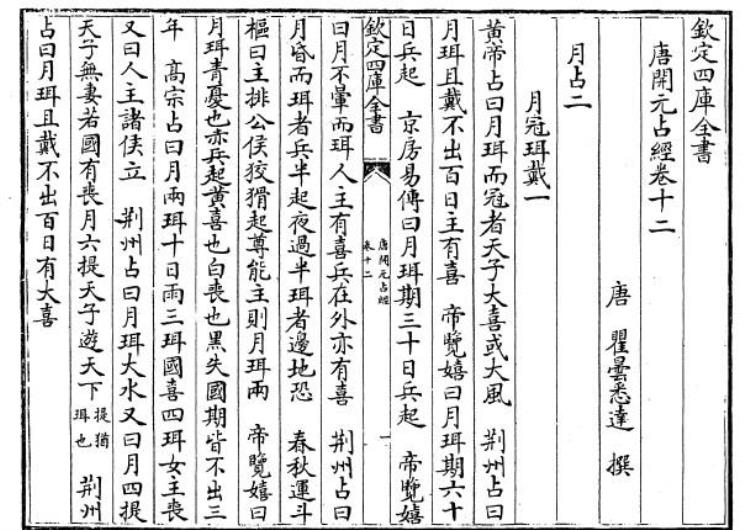 欽定四庫全書
唐開元占經卷十二
唐 瞿曇悉達 撰
月占二
月冠珥戴一
黃帝占曰月珥而冠者天子大喜或大風 荆州占曰
月珥且戴不出百日主有喜 帝覽嬉曰月珥期六十
日兵起 京房易傳曰月珥期三十日兵起 帝覽嬉
欽定四庫全書
唐開元占經
卷十二
一
曰月不暈而珥人主有喜兵在外亦有喜 荆州占曰
月昏而珥者兵半起夜過半珥者邊地恐 春秋運斗
樞曰主排公侯狡猾起尊能主則月珥兩 帝覽嬉曰
月珥青憂也赤兵起黃喜也白喪也黑失國期皆不出三
年 高宗占曰月兩珥十日雨三珥國喜四珥女主喪
又曰人主諸侯立 荆州占曰月珥大水又曰月四提
天子無妻若國有喪月六提天子遊天下提猶珥也 荆州
占曰月珥且戴不出百日有大喜